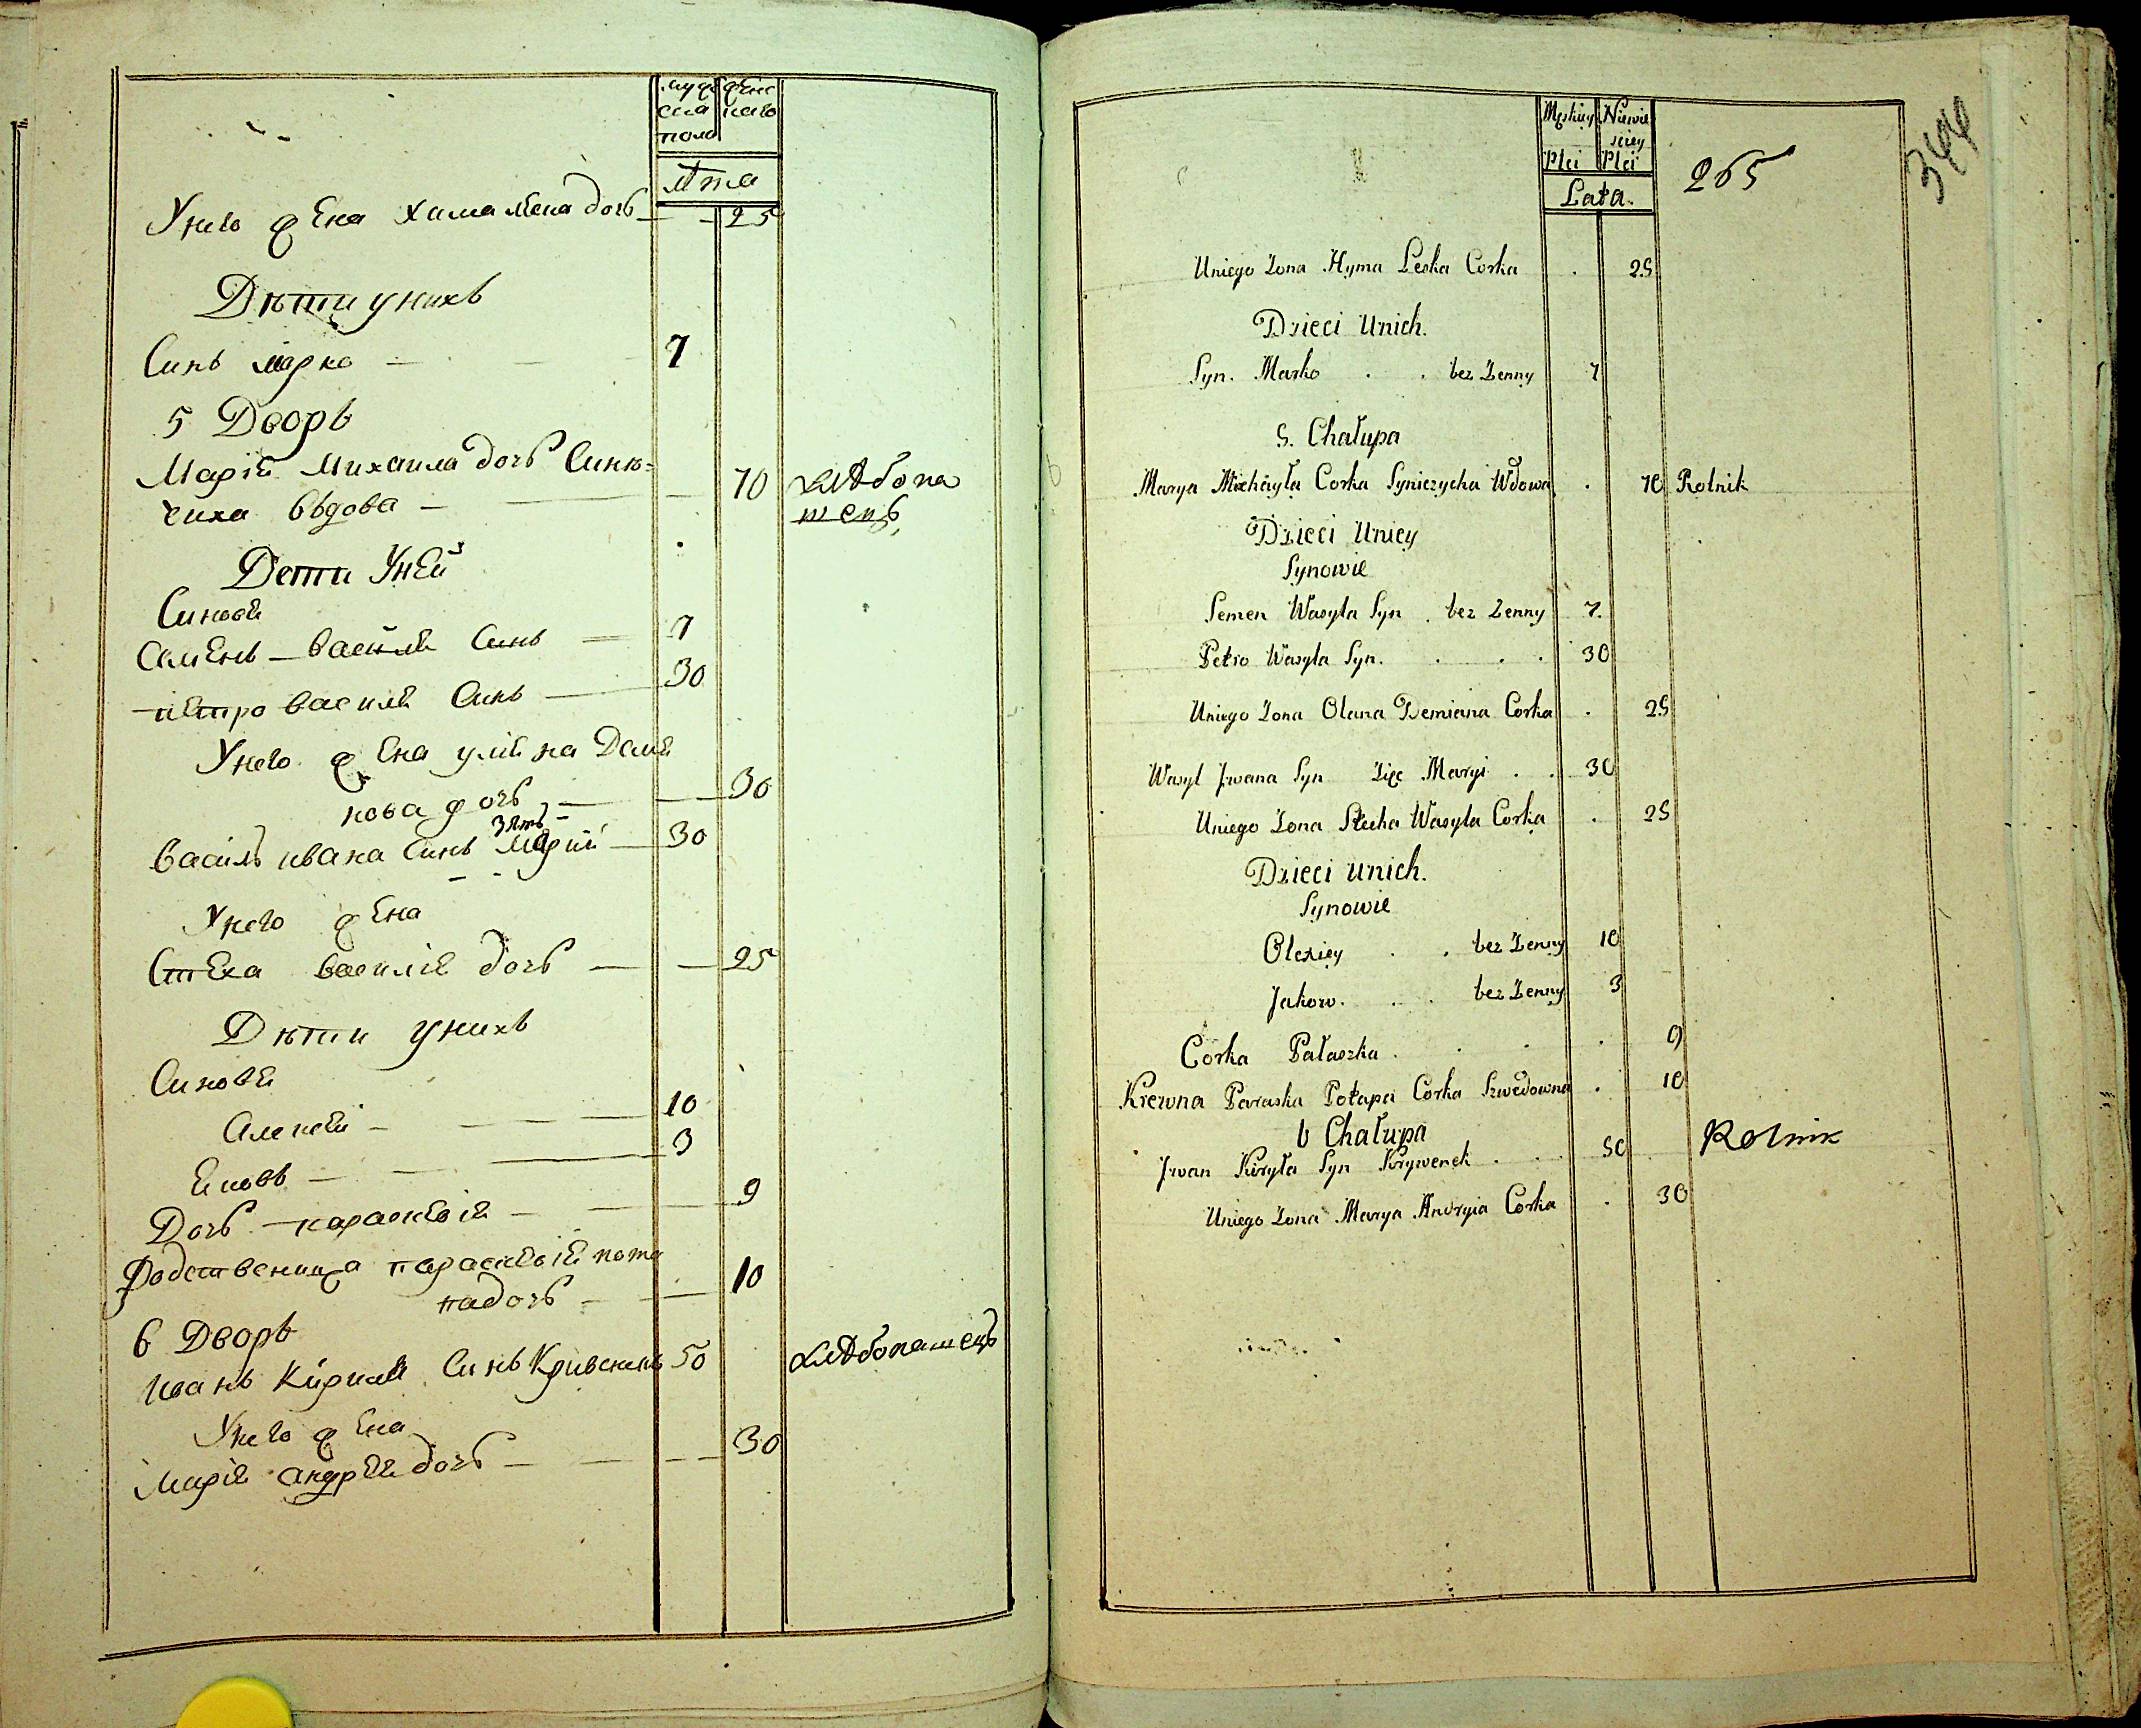 мужеска пола
женскаго
лѣта
Унего жена Хима леска дочь 25
Дѣти унихъ
Синъ марко 7
5 Дворъ
Марія Михаила дочь Синю=
чиха вьдова 70 хлѣбопа
шецъ
Дети Уней
Синовя
Семенъ василя Синъ 7
петро василя Синъ 30
Унего жена уляна Деме
нова дочь 30
василь ивана Синъ зять Маріи 30
Унего жена
Стеха василя дочь 25
Дѣти унихъ
Синовя
Алексей 10
Яковъ 3
Дочь параскевія 9
Родственица параскевія пота
па дочь 10
6 Дворъ
иванъ Кирила Синъ Кривенекъ 50 хлѣбопашецъ
Унего жена
Марія андрея дочь 30
344
265
Męskiey Plei
Niewieściey Plei
Lata.
Uniego Zona Hyma Leska Corka 25
Dzieci Unich.
Syn. Marko bez Zenny 7
5. Chałupa
Marya Michayła Corka Syniczycha Wdowa 70 Rolnik
Dzieci Uniey
Synowie
Semen Wasyla Syn bez Zenny 7
Petro Wasyla Syn. 30
Uniego Zona Olana Demiana Corka 25
Wasyl Jwana Syn Zięc Maryi 30
Uniego Zona Stecha Wasyla Corka 25
Dzieci Unich.
Synowie
Olexiey bez Zenny 10
Jakow. bez Zenny 3
Corka Pałaszka 9
Krewna Paraska Potapa Corka Szwedowna 10
6 Chałupa
Jwan Kiryła Syn Krywenek 50 Rolnik
Uniego Zona Marya Andryia Corka 30